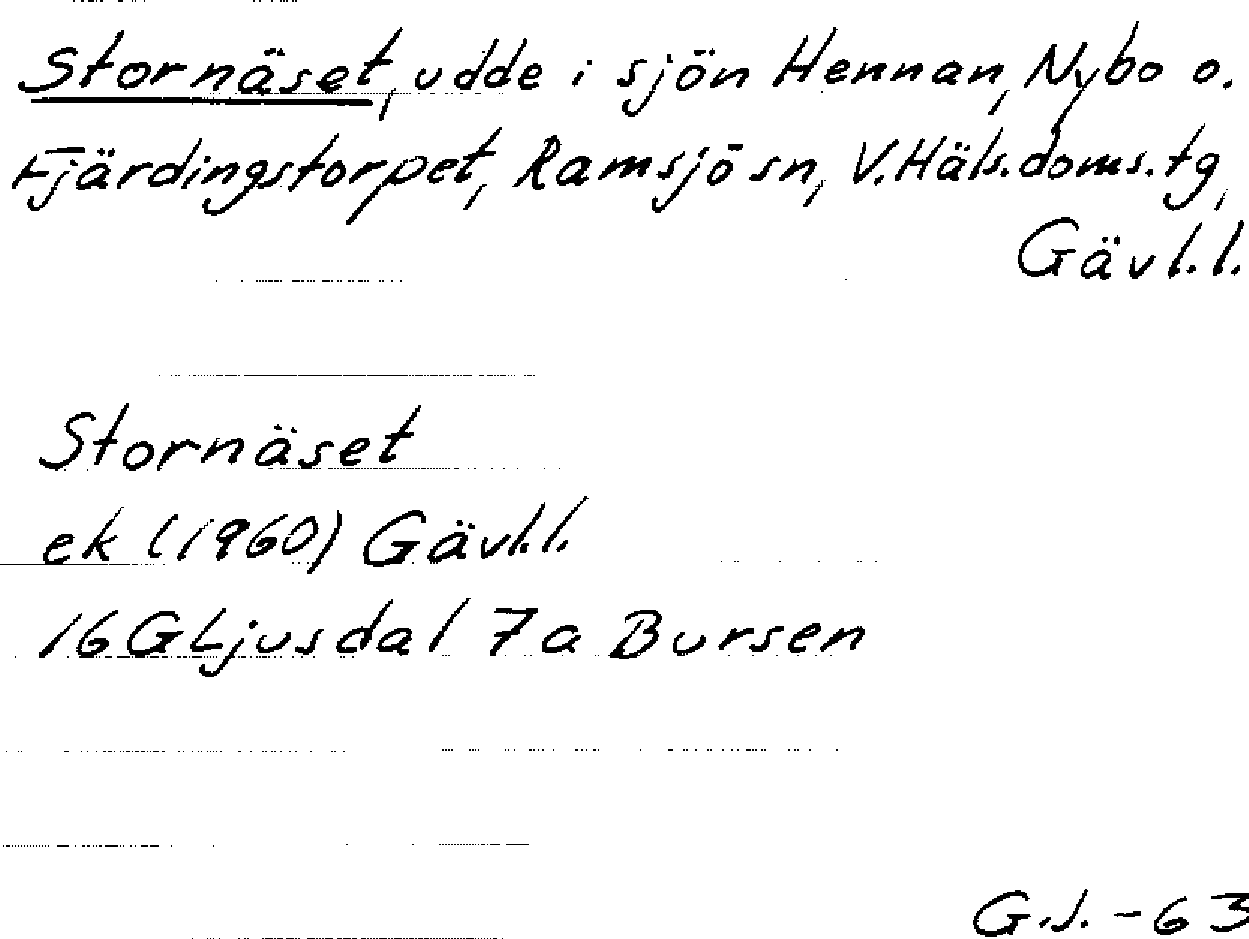 Stornäset, udde i sjön Hennan, Nybo o.
Fjärdingstorpet, Ramsjö sn, V.Häls.doms.tg,
Gävl.l.
Stornäset
ek (1960) Gävl.l.
16G Ljusdal 7a Bursen
G.J. -63